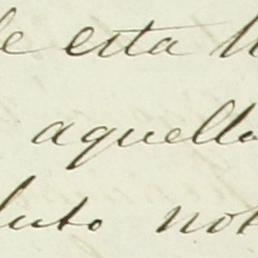 e esta
aquella
luto not